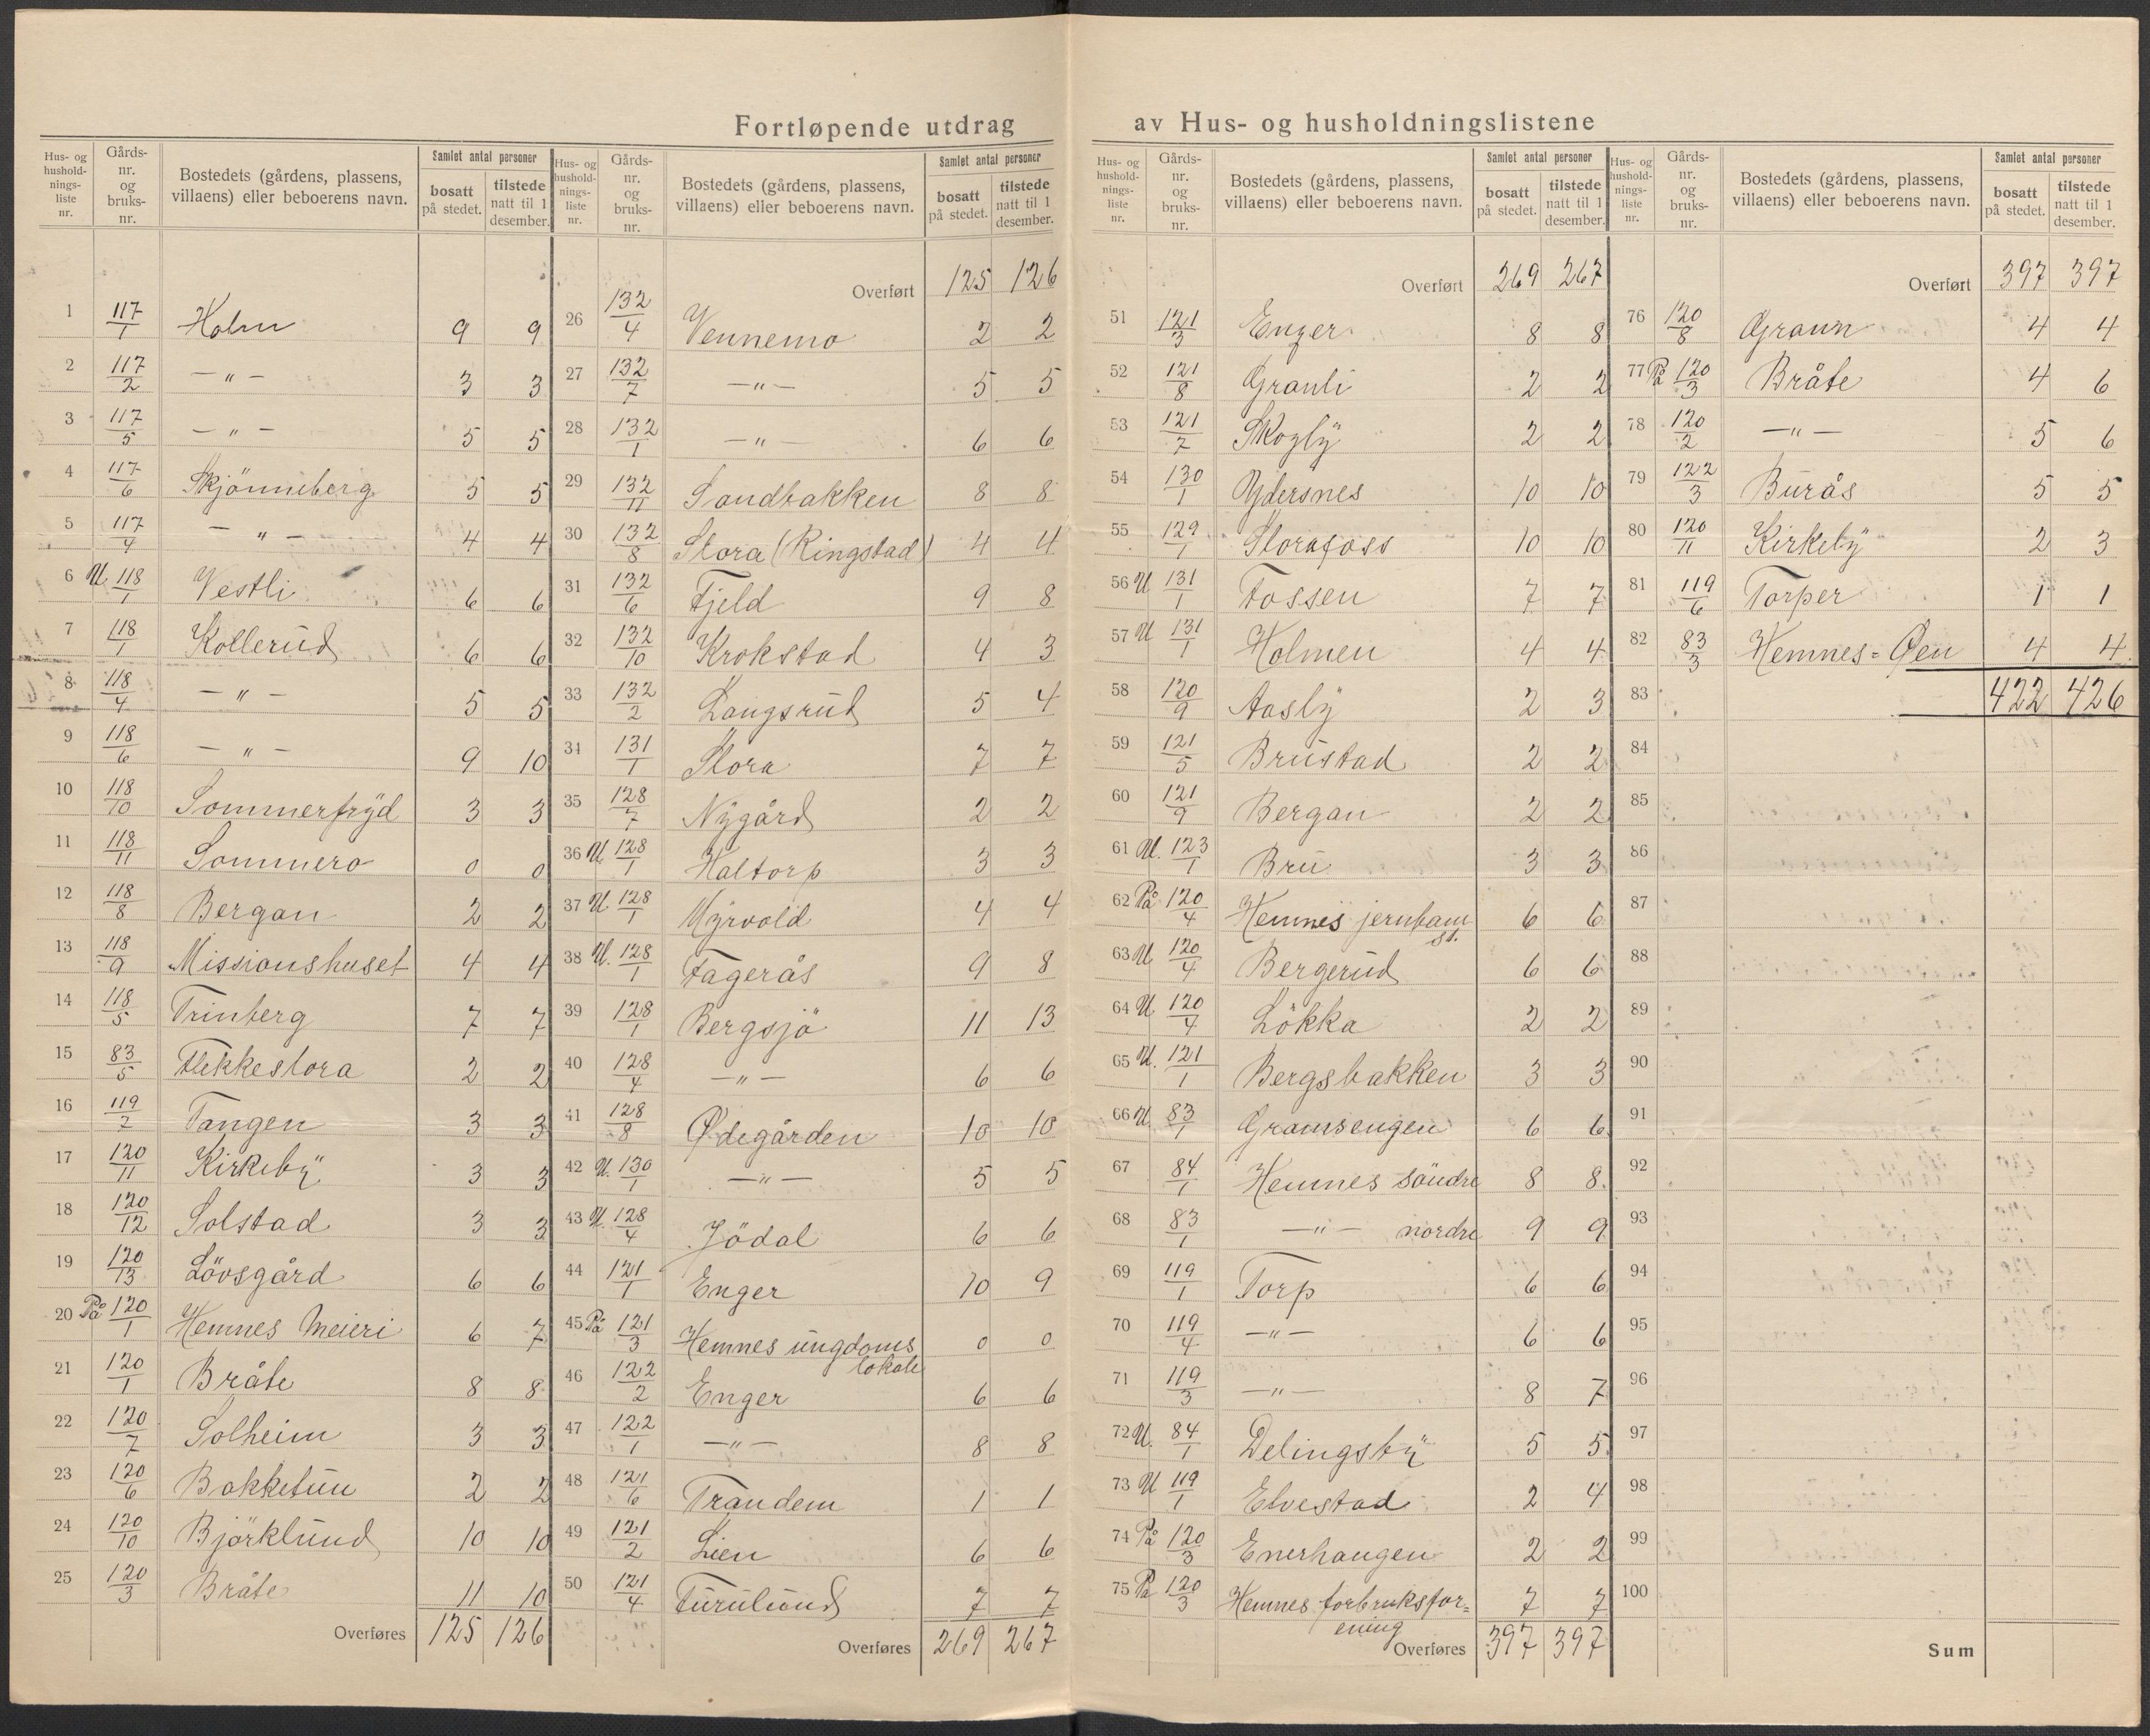 Fortløpende utdrag av Hus- og husholdningslistene
Hus- og hushold-nings-liste nr. Gårds-nr. og bruks-nr. Bostedets (gårdens, plassens, villaens) eller beboerens navn. Samlet antal personer bosatt på stedet. tilstede natt til 1 desember.
1 117/1 Holm 9 9
2 117/2 —"— 3 3
3 117/5 —"— 5 5
4 117/6 Skjönneberg 5 5
5 117/4 —"— 4 4
6 U. 118/1 Vestli 6 6
7 118/1 Kollerud 6 6
8 118/4 —"— 5 5
9 118/6 —"— 9 10
10 118/10 Sommerfryd 3 3
11 118/11 Sommero 0 0
12 118/8 Bergan 2 2
13 118/9 Missionshuset 4 4
14 118/5 Trinberg 7 7
15 83/5 Flekkeslora 2 2
16 119/2 Tangen 3 3
17 120/11 Kirkeby 3 3
18 120/12 Solstad 3 3
19 120/13 Lövsgård 6 6
20 På 120/1 Hemnes Meieri 6 7
21 120/1 Bråte 8 8
22 120/7 Solheim 3 3
23 120/6 Bakketun 2 2
24 120/10 Björklund 10 10
25 120/3 Bråte 11 10
Overføres 125 126
Hus- og hushold-nings-liste nr. Gårds-nr. og bruks-nr. Bostedets (gårdens, plassens, villaens) eller beboerens navn. Samlet antal personer bosatt på stedet. tilstede natt til 1 desember.
Overført 125 126
26 132/4 Vennemo 2 2
27 132/7 —"— 5 5
28 132/1 —"— 6 6
29 132/11 Sandbakken 8 8
30 132/8 Slora (Ringstad) 4 4
31 132/6 Fjeld 9 8
32 132/10 Krokstad 4 3
33 132/2 Langsrud 5 4
34 131/1 Slora 7 7
35 128/7 Nygård 2 2
36 U. 128/1 Haltorp 3 3
37 U. 128/1 Myrvold 4 4
38 U. 128/1 Fagerås 9 8
39 128/1 Bergsjö 11 13
40 128/4 —"— 6 6
41 128/8 Ødegården 10 10
42 U. 130/1 —"— 5 5
43 U. 128/4 Jödal 6 6
44 121/1 Enger 10 9
45 På 121/3 Hemnes ungdoms lokale 0 0
46 122/2 Enger 6 6
47 122/1 —"— 8 8
48 121/6 Trandem 1 1
49 121/2 Lien 6 6
50 121/4 Furulund 7 7
Overføres 269 267
Hus- og hushold-nings-liste nr. Gårds-nr. og bruks-nr. Bostedets (gårdens, plassens, villaens) eller beboerens navn. Samlet antal personer bosatt på stedet. tilstede natt til 1 desember.
Overført 269 267
51 121/3 Enger 8 8
52 121/8 Granli 2 2
53 121/7 Skogly 2 2
54 130/1 Ydersnes 10 10
55 129/1 Slorafoss 10 10
56 U 131/1 Fossen 7 7
57 U 131/1 Holmen 4 4
58 120/9 Aasly 2 3
59 121/5 Brustad 2 2
60 121/9 Bergan 2 2
61 U. 123/1 Bru 3 3
62 På 120/4 Hemnes jernban st. 6 6
63 U 120/4 Bergerud 6 6
64 U 120/4 Lökka 2 2
65 U. 121/1 Bergsbakken 3 3
66 U. 83/1 Gramsengen 6 6
67 84/1 Hemnes söndre 8 8
68 83/1 —"— nordre 9 9
69 119/1 Torp 6 6
70 119/4 —"— 6 6
71 119/3 —"— 8 7
72 U. 84/1 Delingsby 5 5
73 U 119/1 Elvestad 2 4
74 På 120/3 Enerhaugen 2 2
75 På 120/3 Hemnes forbruksfor=
ening 7 7
Overføres 397 397
Hus- og hushold-nings-liste nr. Gårds-nr. og bruks-nr. Bostedets (gårdens, plassens, villaens) eller beboerens navn. Samlet antal personer bosatt på stedet. tilstede natt til 1 desember.
Overført 397 397
76 120/8 Graun 4 4
77 På 120/3 Bråte 4 6
78 120/2 —"— 5 6
79 122/3 Burås 5 5
80 120/11 Kirkeby 2 3
81 119/6 Torper 1 1
82 83/3 Hemnes=Øen 4 4
83 422 426
84
85
86
87
88
89
90
91
92
93
94
95
96
97
98
99
100
Sum